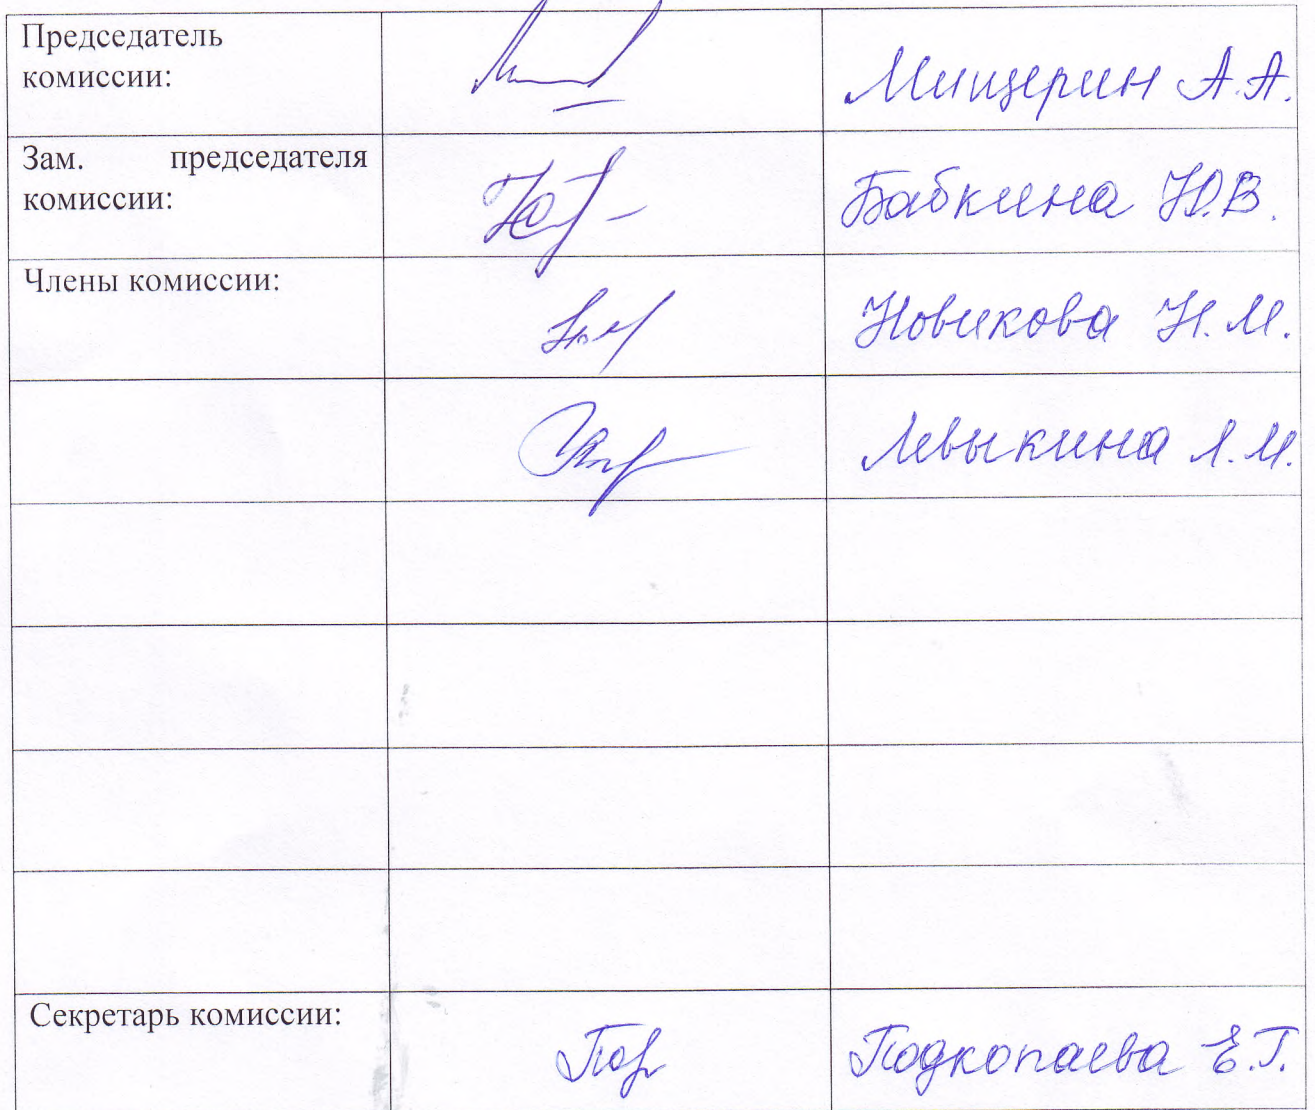 Председатель
комиссии:
Мищерин А.А.
Зам. председателя
комиссии:
Бабкина Ю.В.
Члены комиссии:
Новикова Н.М.
Левыкина Л.М.
Секретарь комиссии:
Подкопаева Е.Г.